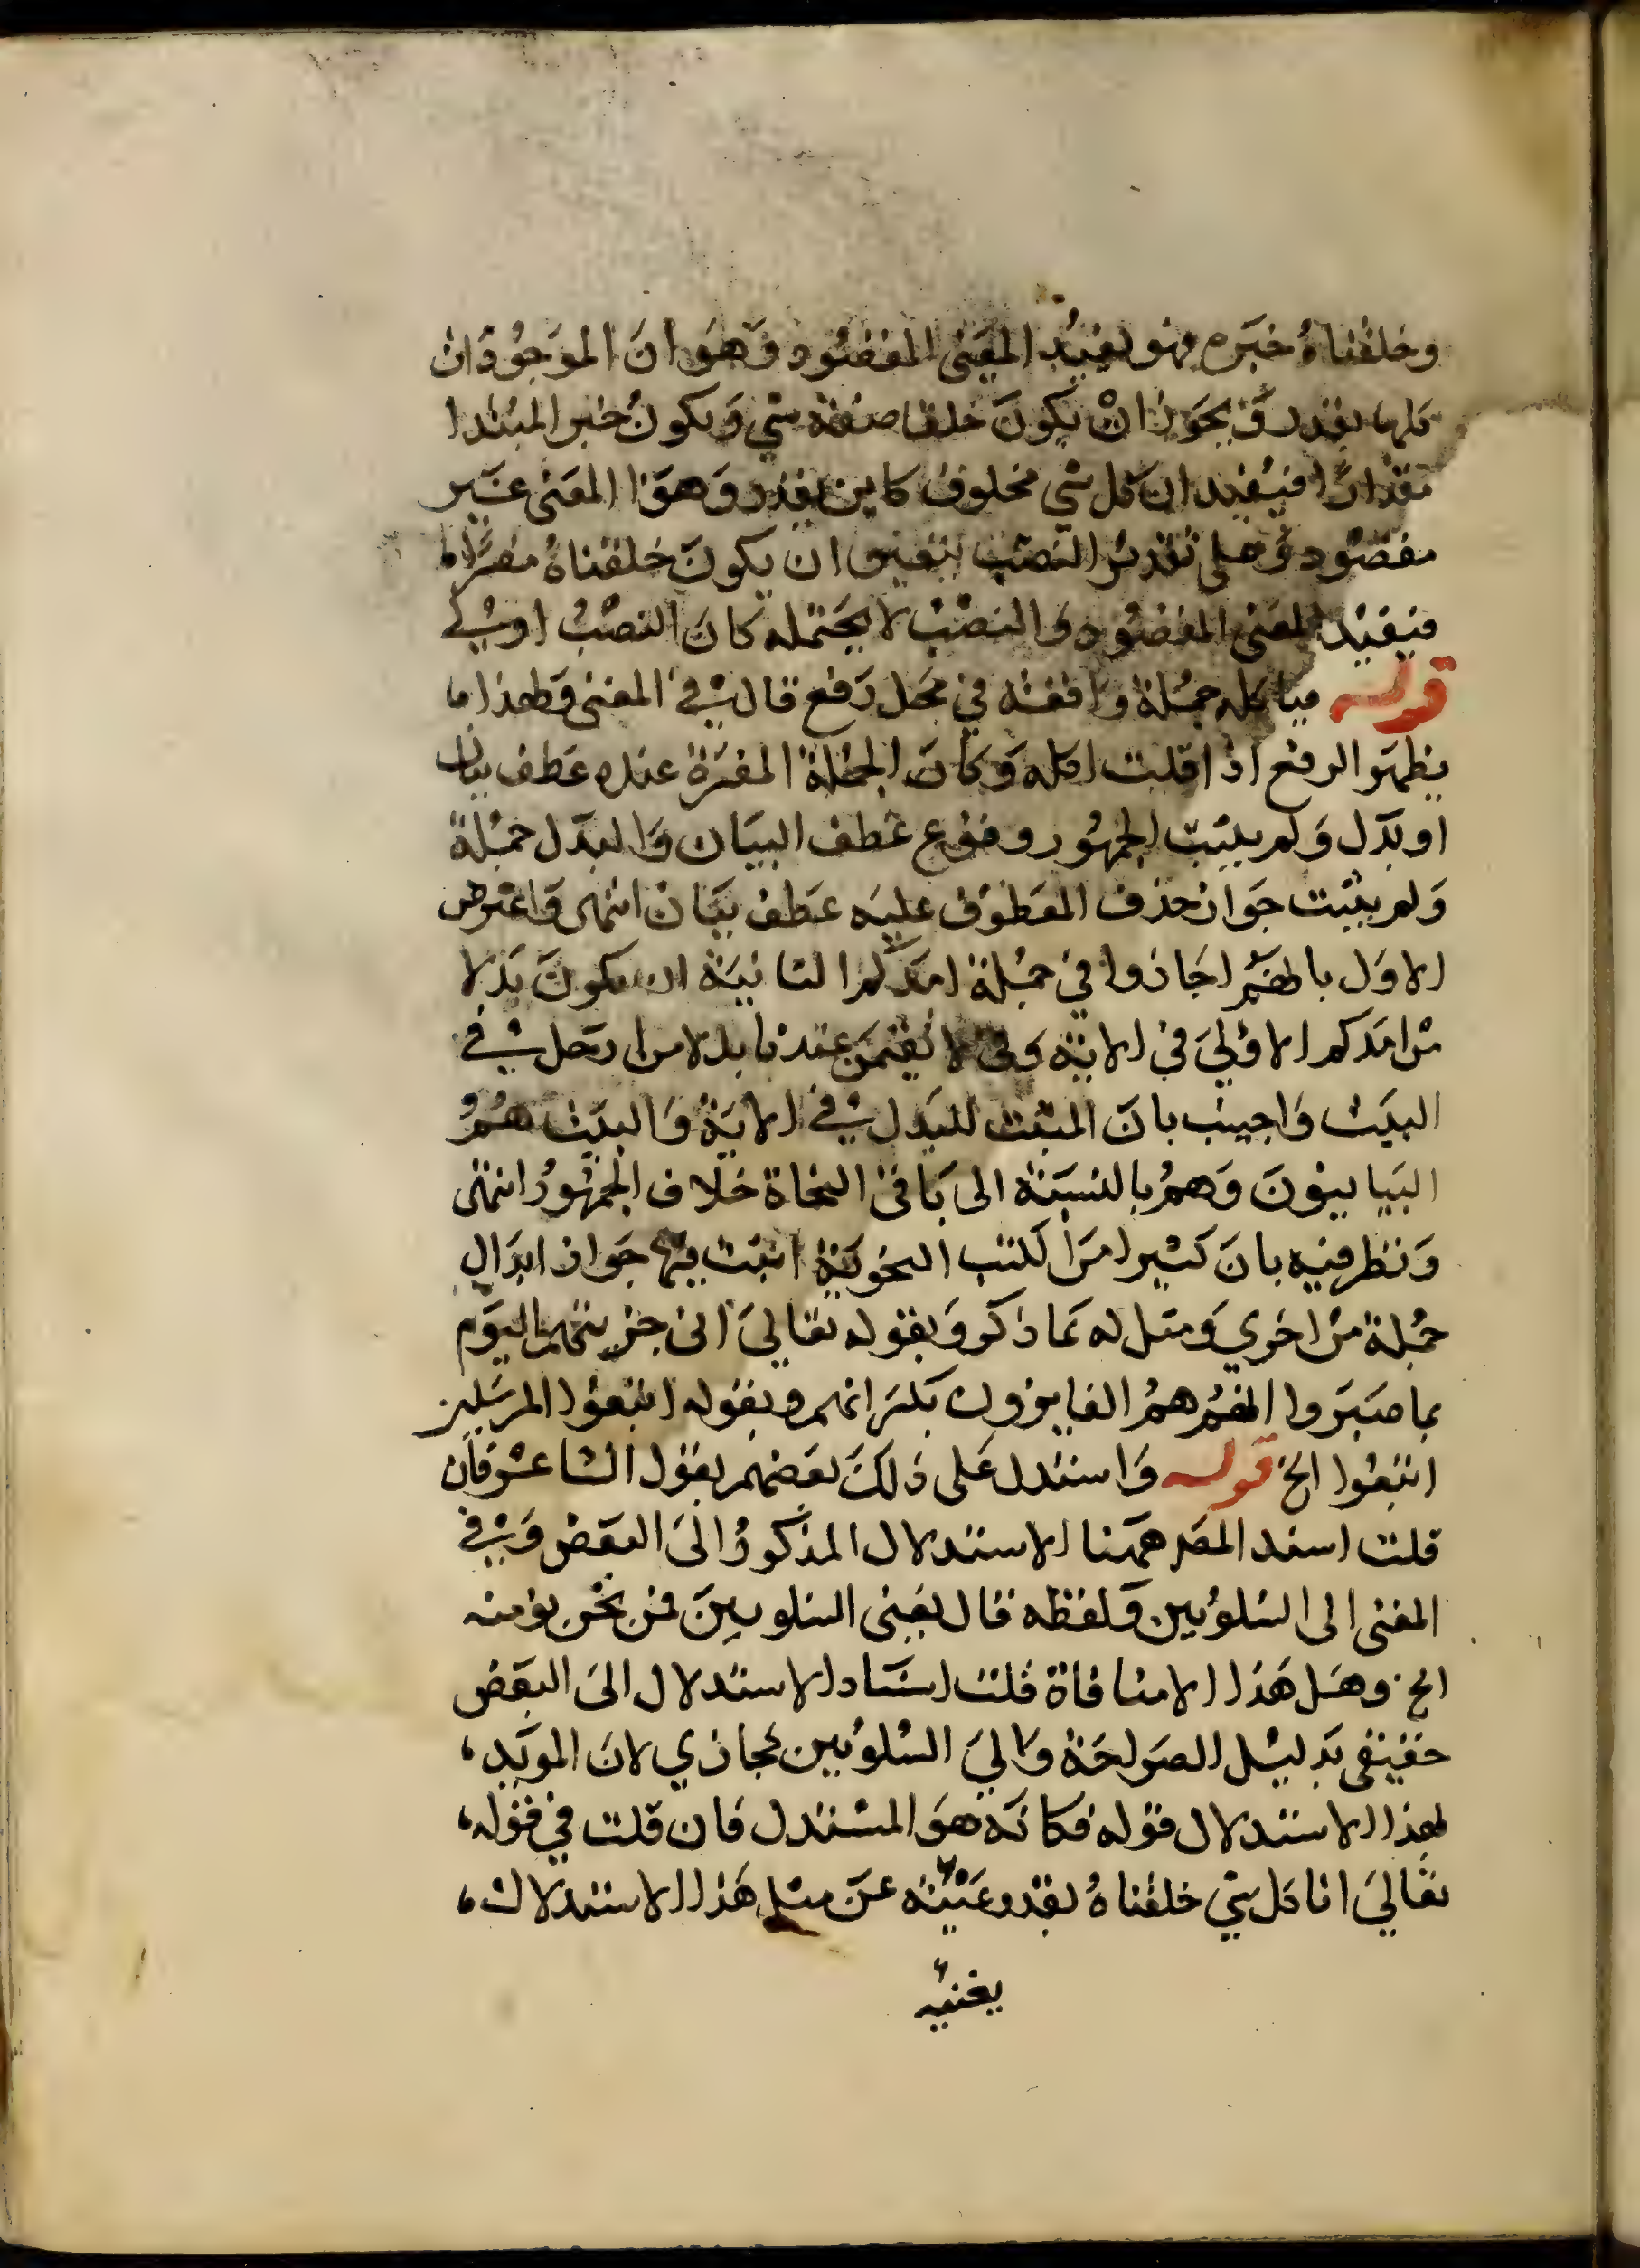 وخلقناه خبره فهو يفيد المعنى المقصود وهو ان الموجودات
كلها بقدر ويجوز ان يكون خلقنا صفة شي ويكون خبر المبتدا
بقدر فيفيد ان كل شي مخلوق كاين بقدر وهو المعنى غير
مقصود وعلى تقدير النصب يتعين ان يكون خلقناه مفسرا
فيفيد المعنى المقصود والنصب لا يحتمله كان النصب اولي
قوله فياكله جملة واقعة في محل رفع قال في المغني ولهذا ما
يظهر الرفع اذا قلت اكله وكان الجملة المفسرة عنده عطف بيان
او بدل ولم يثبت الجمهور وقوع عطف البيان والبدل جملة
ولم يثبت جواز حذف المعطوف عليه عطف بيان انتهى واعترض
الاول بانهم اجازوا في جملة امدكم الثانية ان يكون بدلا
من امدكم الاولي في الاية وفي لا تقيمن عندنا بدلا من ارحل في
البيت واجيب بان المثبت للبدل في الاية والبيت هم
البيانيون وهم بالنسبة الى باقي النحاة خلاف الجمهور انتهى
ونظر فيه بان كثيرا من الكتب النحوية اثبت فيها جواز ابدال
جملة من اخري ومثل له بما ذكر وبقوله تعالي اني جزيتهم اليوم
بما صبروا انهم هم الفايزون بكسر انهم وبقوله اتبعوا المرسلين
اتبعوا الخ قوله واستدل على ذلك بعضهم بقول الشاعر فان
قلت اسند المصـ ههنا الاستدلال المذكور الى البعض وفي
المغني الى الشلوبين ولفظه قال يعني الشلوبين فمن نحن نؤمنه
الخ وهل هذا الا منافاة قلت اسناد الاستدلال الى البعض
حقيقي بدليل الصراحة والي الشلوبين مجازي لان المويد
لهذا الاستدلال قوله فكانه هو المستدل فان قلت في قوله
تعالي انا كل شي خلقناه بقدر غنية عن مثل هذا الاستدلال
يغنيه